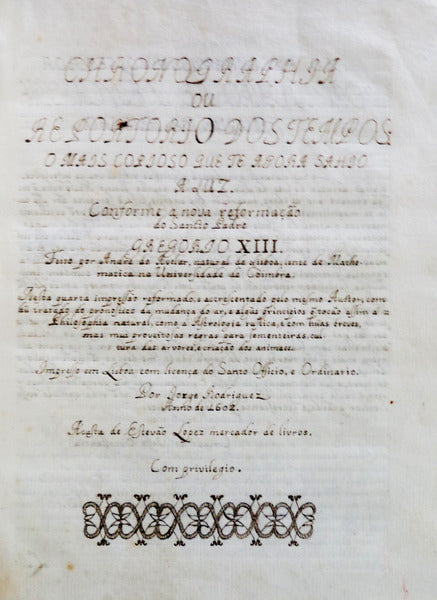 CHRONOGRAPHIA
OU
REPORTORIO DOS TEMPOS
O MAIS COPIOSO QUE TE AGORA SAHIO
A LUZ.
Conforme a nova reformação
do Santo Padre
GREGORIO XIII.
Feito por André do Avelar, natural de Lisboa, lente de Mathe-
matica na Universidade de Coimbra.
Nesta quarta impressão reformado, e acrescentado pelo mesmo Author, com
du tratado do pronostico da mudança do ar, e alguñs principios q̃ tocão assim a
Philosophia natural, como a Astrologia rustica, e com huas breves,
mas mui proveitosas regras para sementeiras, cul-
tura das arvores, e criação dos animaes.
Impresso em Lisboa com licença do Santo Officio, e Ordinario.
Por Jorge Rodriguez
Anno de 1602.
Acusta de Estevão Lopez mercador de livros.
Com privilegio.